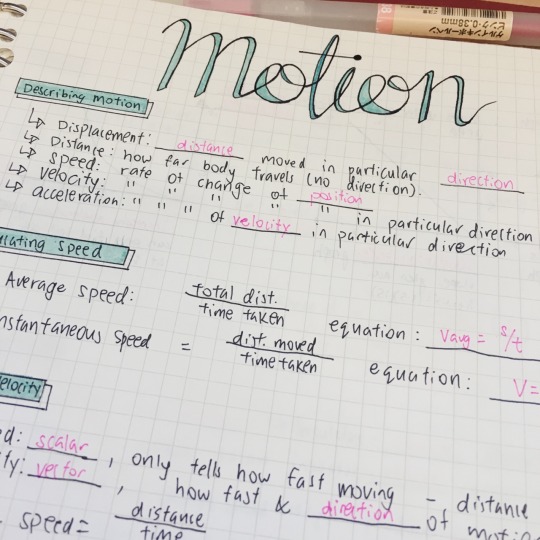 ゲルインキボールペン
ピンク・0.38mm
Motion
Describing motion
↳ Displacement: distance moved in particular direction
↳ Distance: how far body travels (no direction).
↳ Speed: rate of change of position
↳ velocity: " " " " " in particular direction
↳ acceleration: " " " of velocity in particular direction
ulating speed
Average speed: total dist. / time taken equation: Vavg = s/t
nstantaneous speed = dist. moved / time taken equation: V=
elocity
ed: scalar, only tells how fast moving - distance
ty: vector, how fast & direction of moti
speed = distance / time